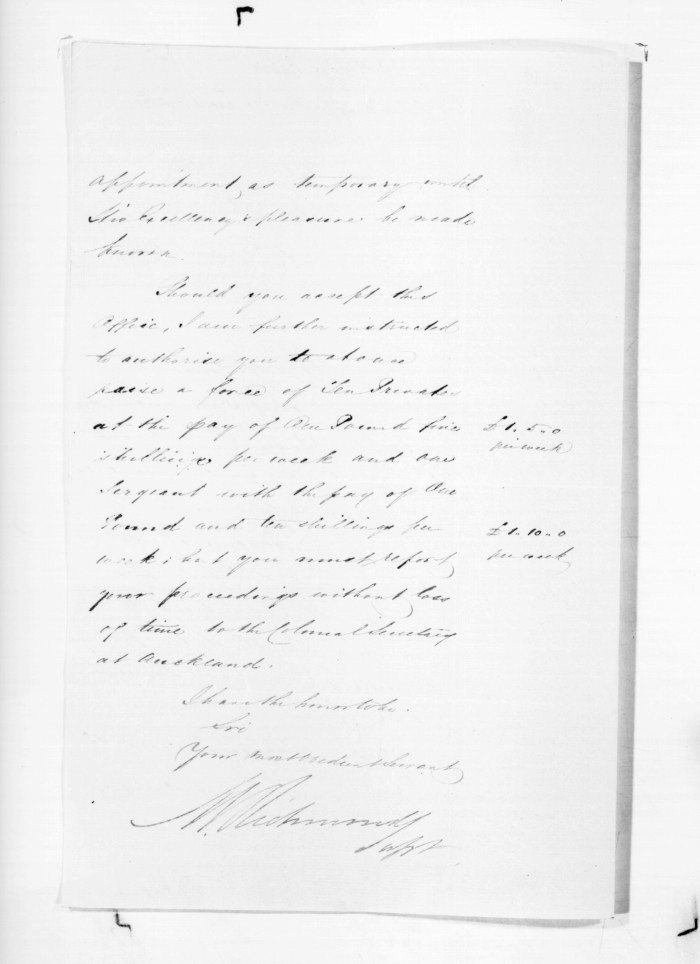 appointment, as temporary until
His Excellency's pleasure be made
known.
Should you accept this
Office, I am further instructed
to authorise you to at once
raise a force of Ten Privates
at the pay of One Pound five
shillings per week and one
Sergeant with the pay of One
Pound and ten shillings per
week; but you must report
your proceedings without loss
of time to the Colonial Secretary
at Auckland.
£1. 5. 0
per week
£1. 10. 0
per week
I have the honor to be.
Sir
Your most obedient Servant
M. Richmond
Supt